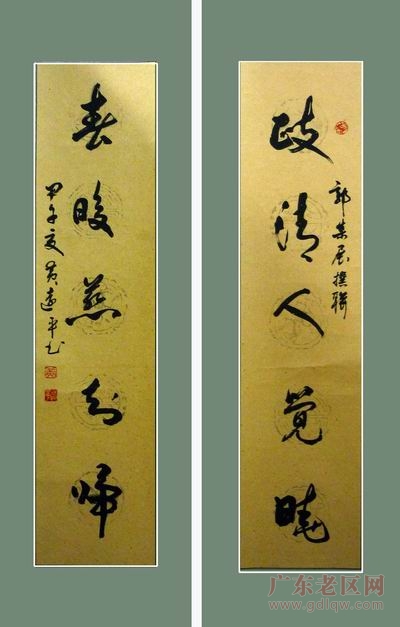 政清人觉晓
郭荣展撰联
春暖燕知啼
甲午夏黄远平书
广东老区网
www.gdlqw.com